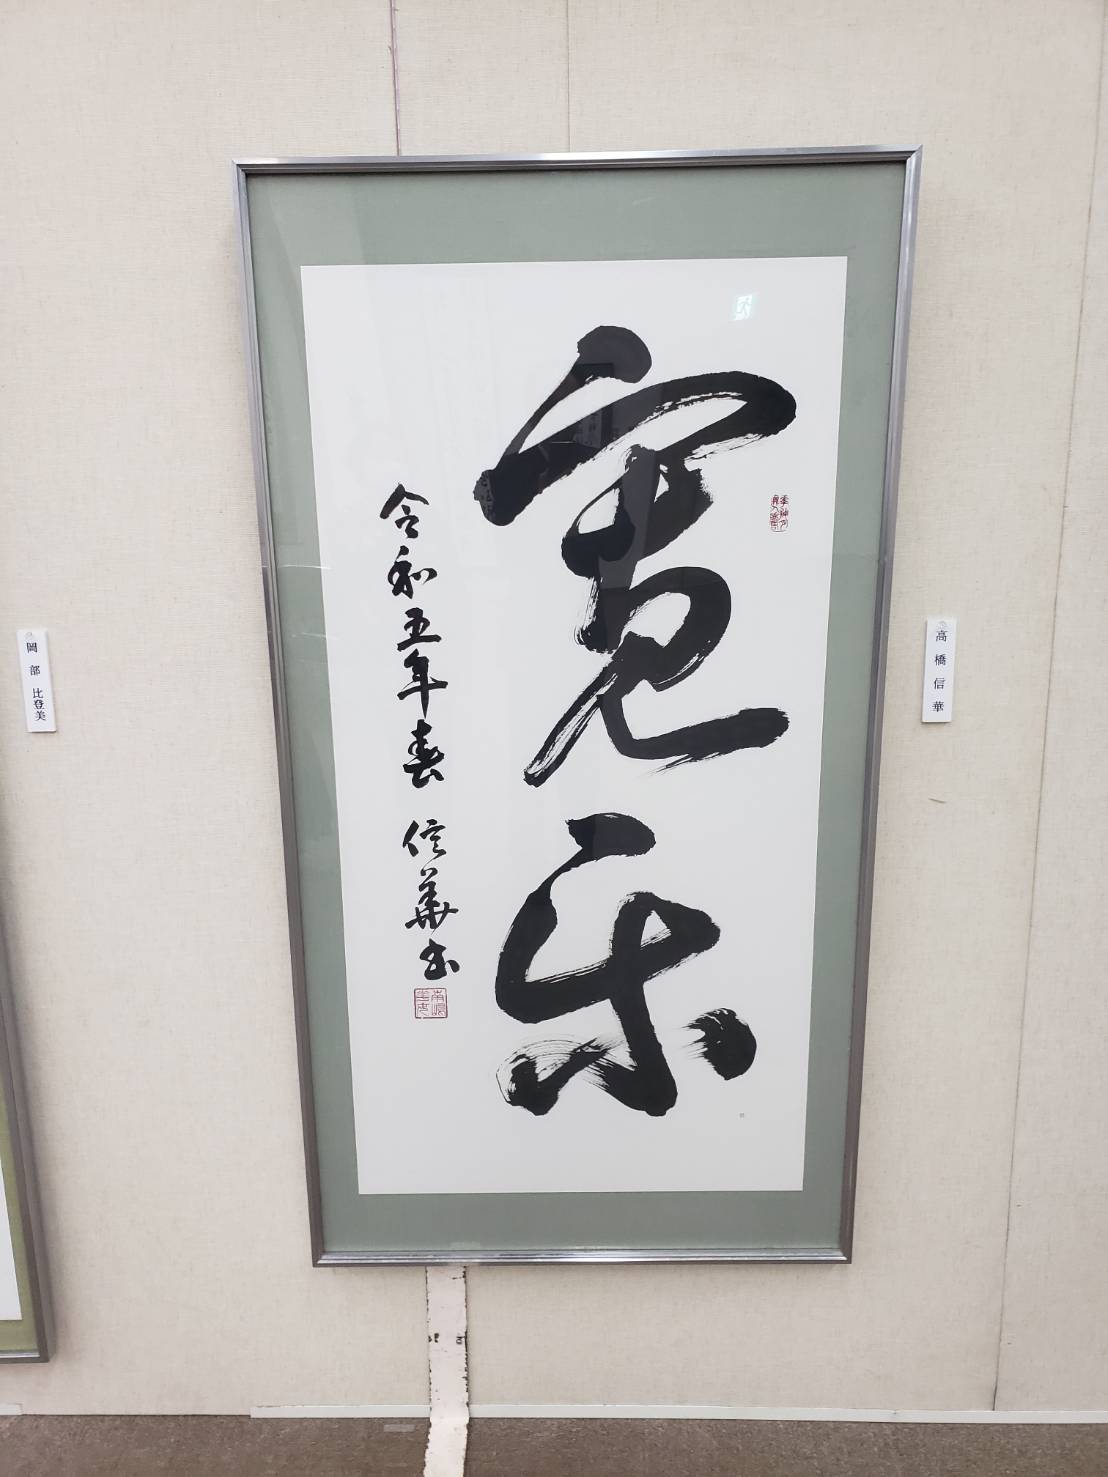 寛楽
令和五年春 信華書
高橋信華
岡部 比登美